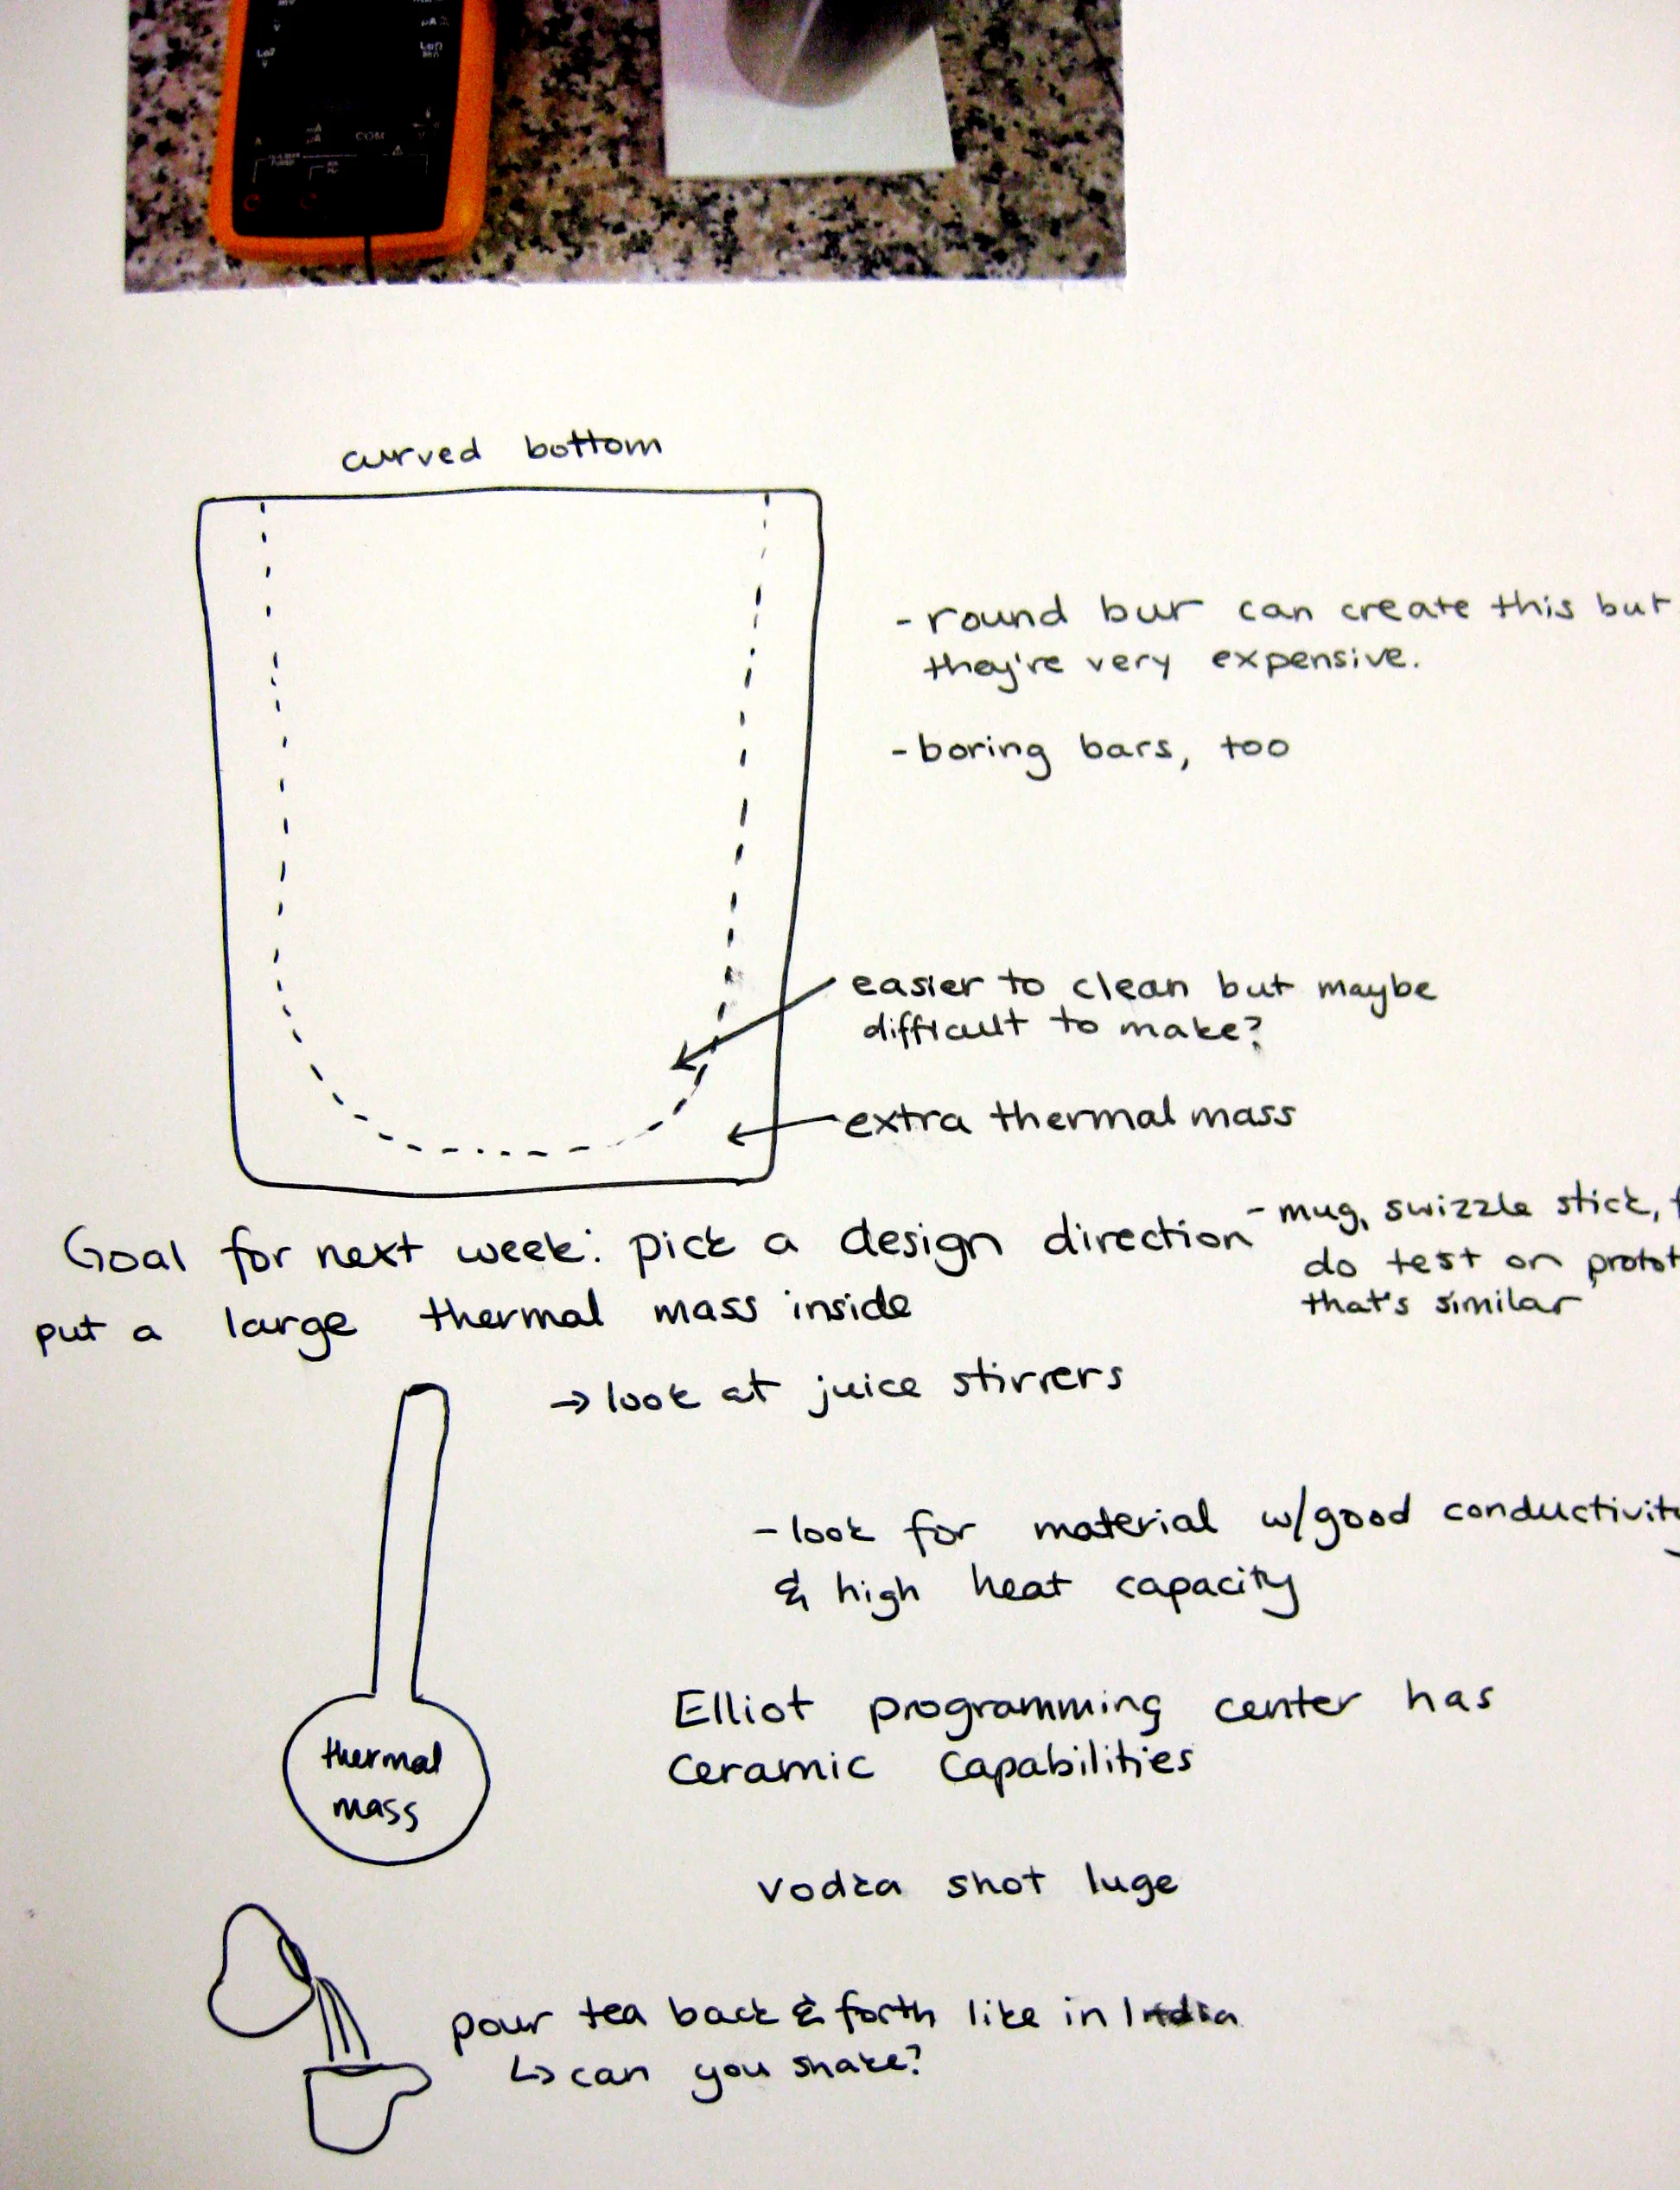 COM
curved bottom
- round bur can create this but
they're very expensive.
- boring bars, too
easier to clean but maybe
difficult to make?
extra thermal mass
Goal for next week: pick a design direction
- mug, swizzle stick,
do test on
that's similar
put a large thermal mass inside
→ look at juice stirrers
- look for material w/good conductivity
& high heat capacity
thermal
mass
Elliot programming center has
Ceramic Capabilities
vodka shot luge
pour tea back & forth like in India
↳ can you shake?